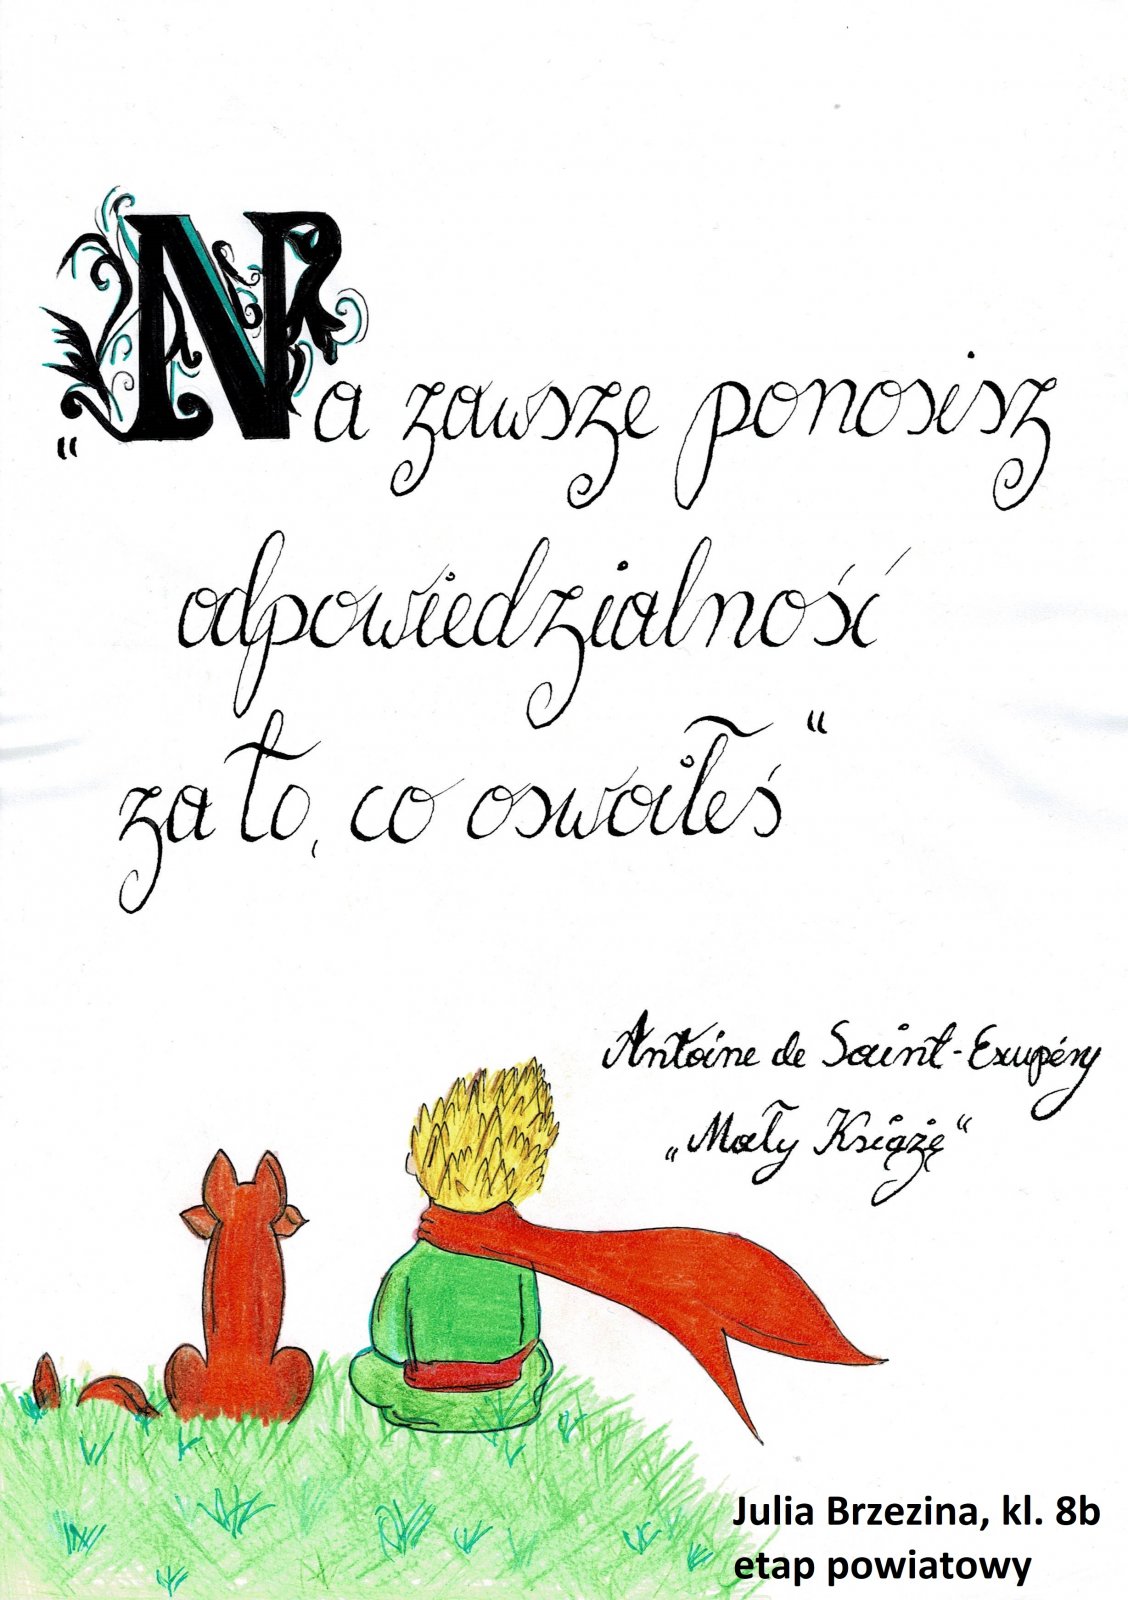 “Na zawsze ponosisz
odpowiedzialność
za to, co oswoiłeś“
Antoine de Saint-Exupéry
„Mały Książę“
Julia Brzezina, kl. 8b
etap powiatowy